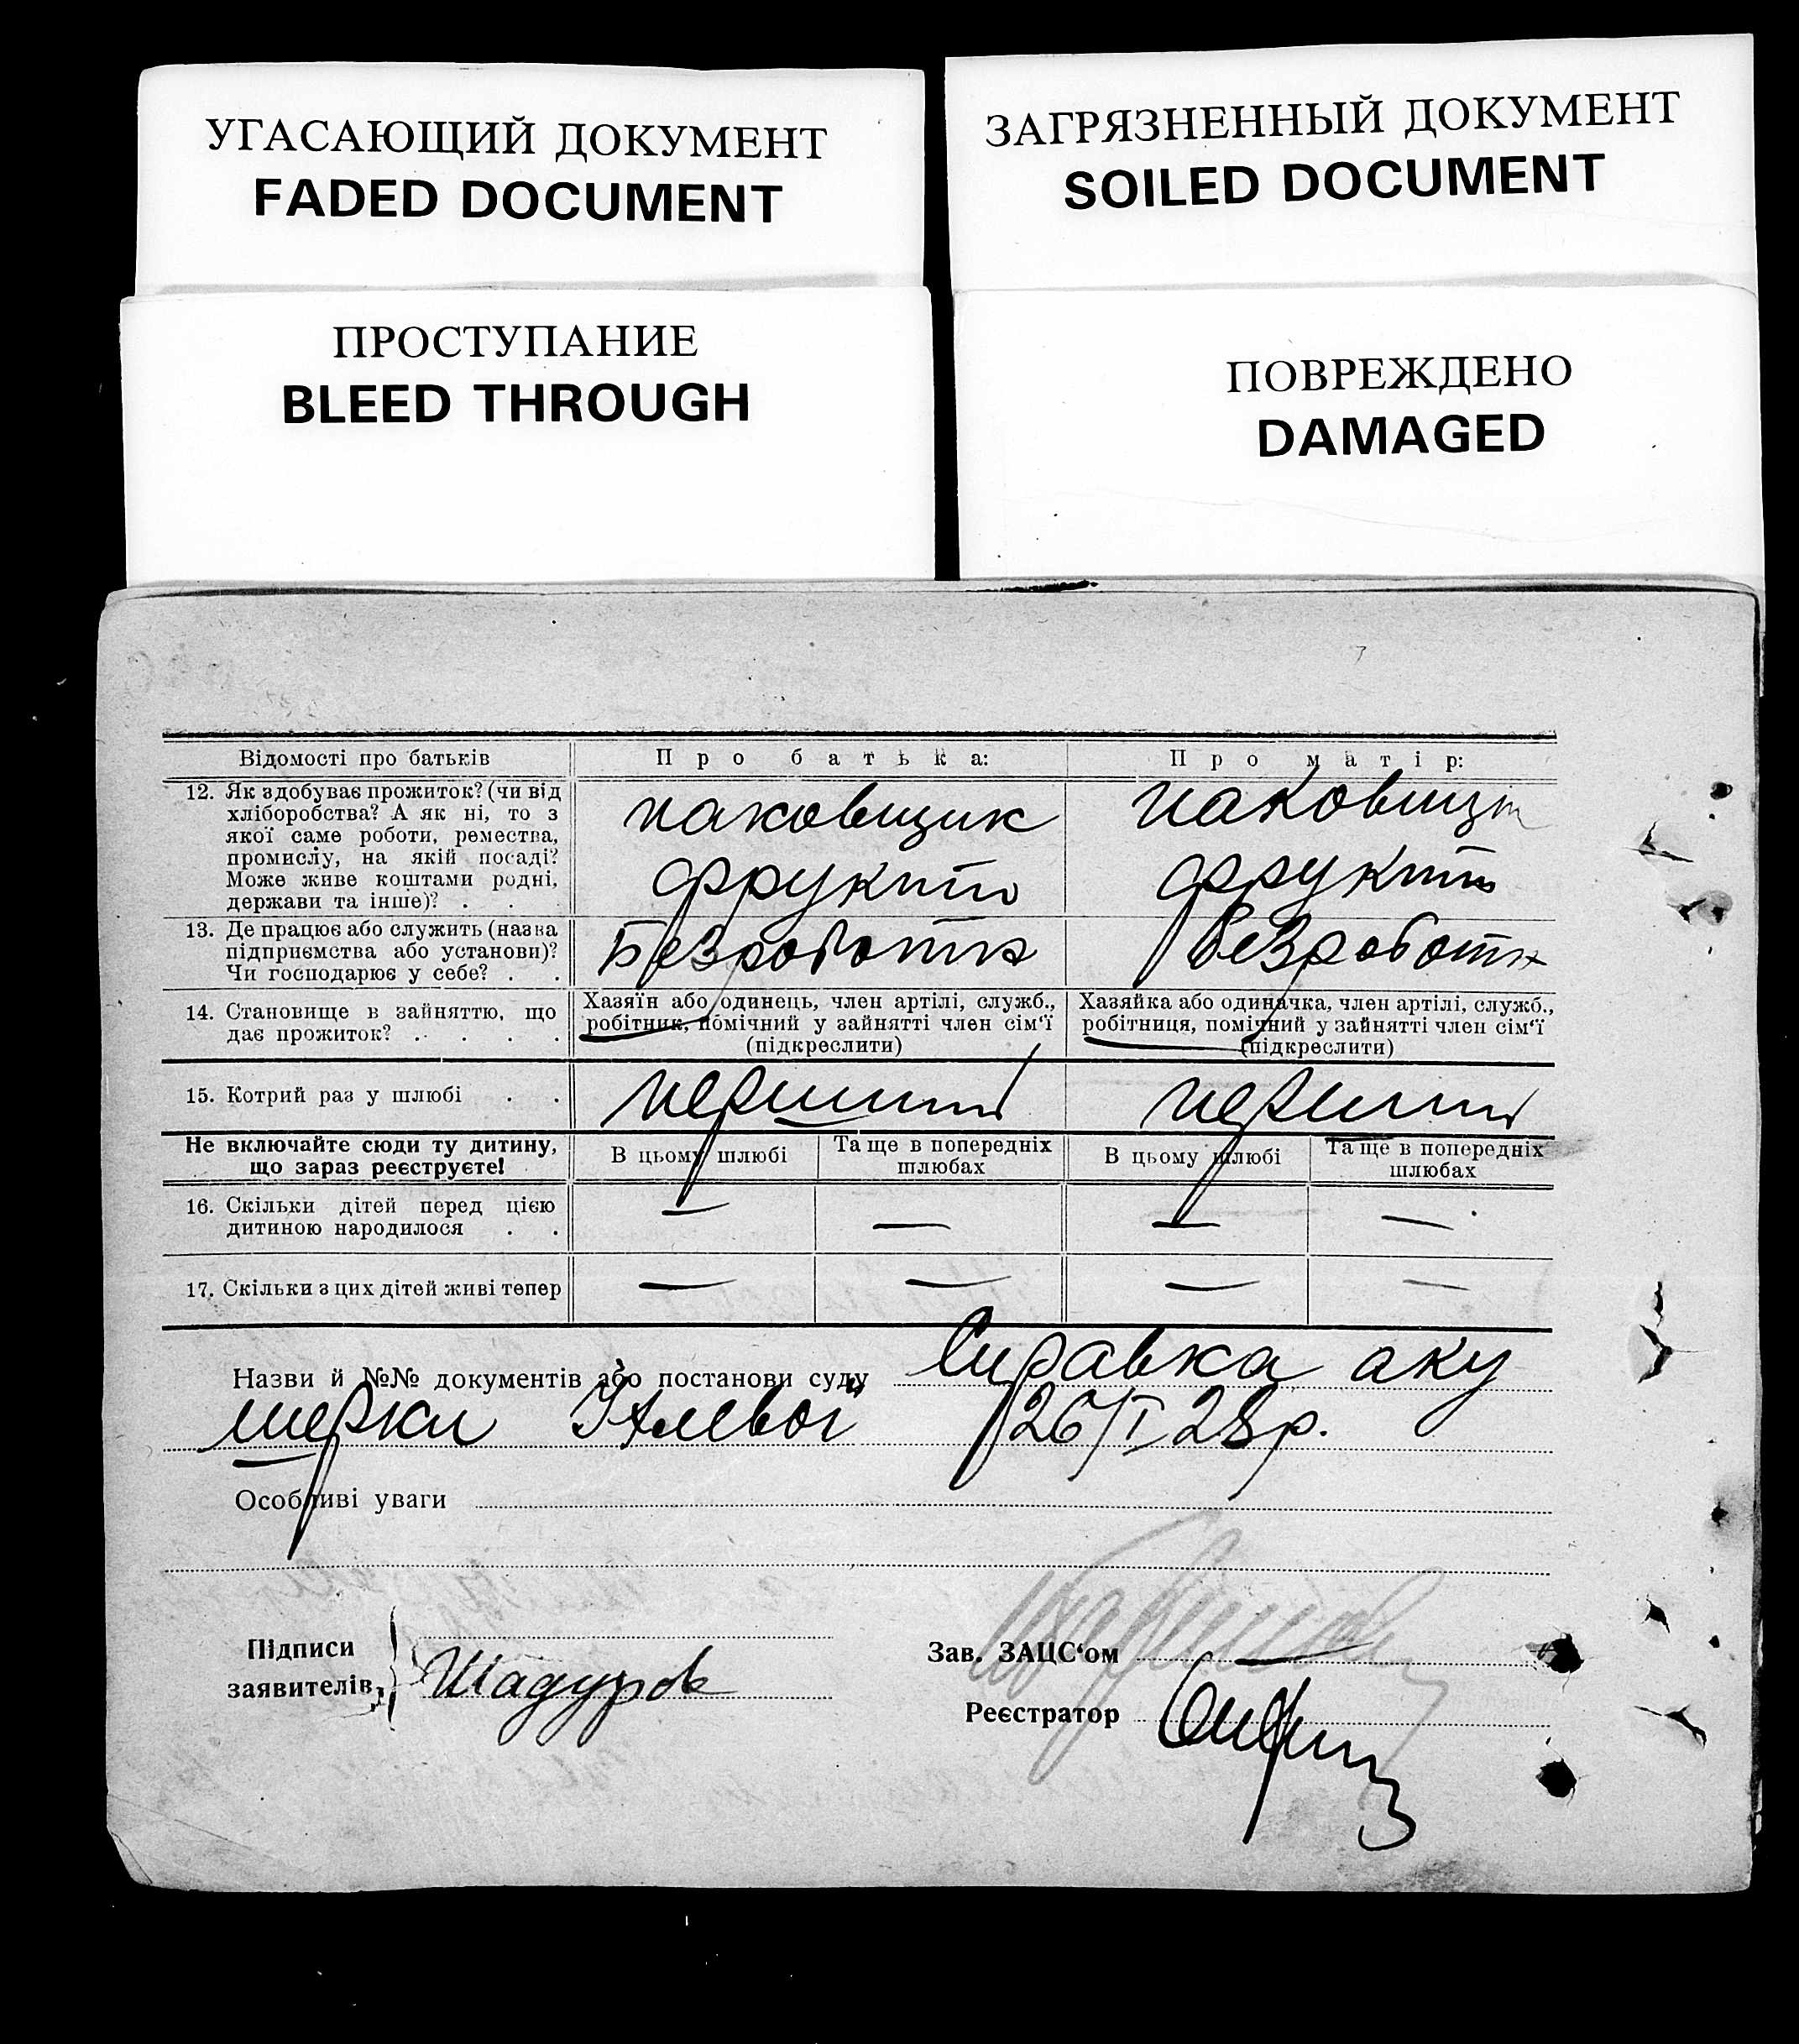 УГАСАЮЩИЙ ДОКУМЕНТ
FADED DOCUMENT
ЗАГРЯЗНЕННЫЙ ДОКУМЕНТ
SOILED DOCUMENT
ПРОСТУПАНИЕ
BLEED THROUGH
ПОВРЕЖДЕНО
DAMAGED
Відомості про батьків
Про батька:
Про матір:
12. Як здобуває прожиток? (чи від
хліборобства? А як ні, то з
якої саме роботи, ремества,
промислу, на якій посаді?
Може живе коштами родні,
держави та інше)? . . .
паковщик
фрукти
паковщик
фрукти
13. Де працює або служить (назва
підприємства або установи)?
Чи господарює у себе? . .
Безроботн
Безроботн
14. Становище в зайняттю, що
дає прожиток? . . . .
Хазяїн або одинець, член артілі, служб.,
робітник, помічний у зайнятті член сім‘ї
(підкреслити)
Хазяйка або одиначка, член артілі, служб.,
робітниця, помічний у зайнятті член сім‘ї
(підкреслити)
15. Котрий раз у шлюбі . .
перший
перший
Не включайте сюди ту дитину,
що зараз реєструєте!
В цьому шлюбі
Та ще в попередніх
шлюбах
В цьому шлюбі
Та ще в попередніх
шлюбах
16. Скільки дітей перед цією
дитиною народилося . .
— — — —
17. Скільки з цих дітей живі тепер
— — — —
Назви й №№ документів або постанови суду Справка аку
шерки 26/I 28 р.
Особливі уваги
Підписи
заявителів
Шадуров
Зав. ЗАЦС‘ом
Реєстратор